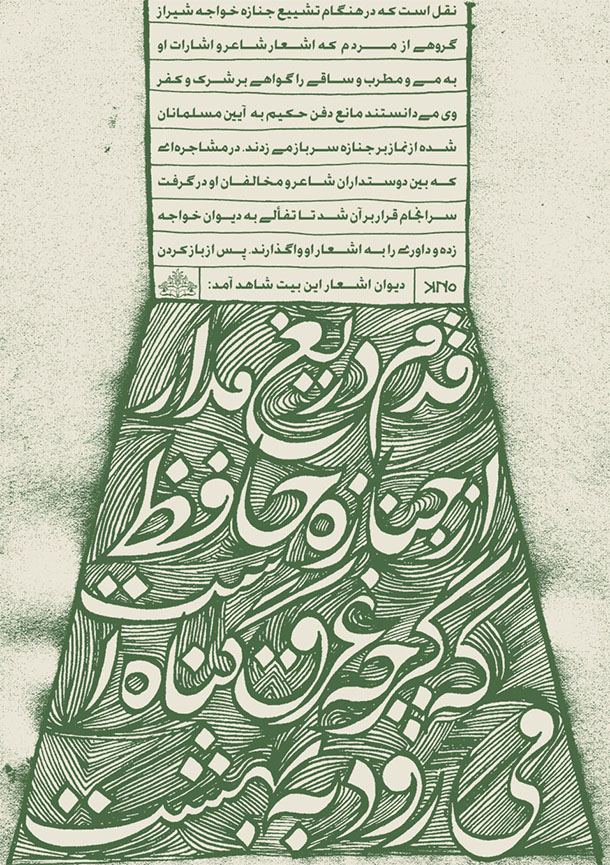 نقل است که در هنگام تشییع جنازه خواجه شیراز
گروهی از مردم که اشعار شاعر و اشارات او
به می و مطرب و ساقی را گواهی بر شرک و کفر
وی می‌دانستند مانع دفن حکیم به آیین مسلمانان
شده از نماز بر جنازه سر باز می زدند. در مشاجره‌ای
که بین دوستداران شاعر و مخالفان او در گرفت
سرانجام قرار بر آن شد تا تفألی به دیوان خواجه
زده و داوری را به اشعار او واگذارند. پس از باز کردن
دیوان اشعار این بیت شاهد آمد:
قدم دریغ مدار
از جنازه حافظ
که گرچه غرق گناه است
می رود به بهشت